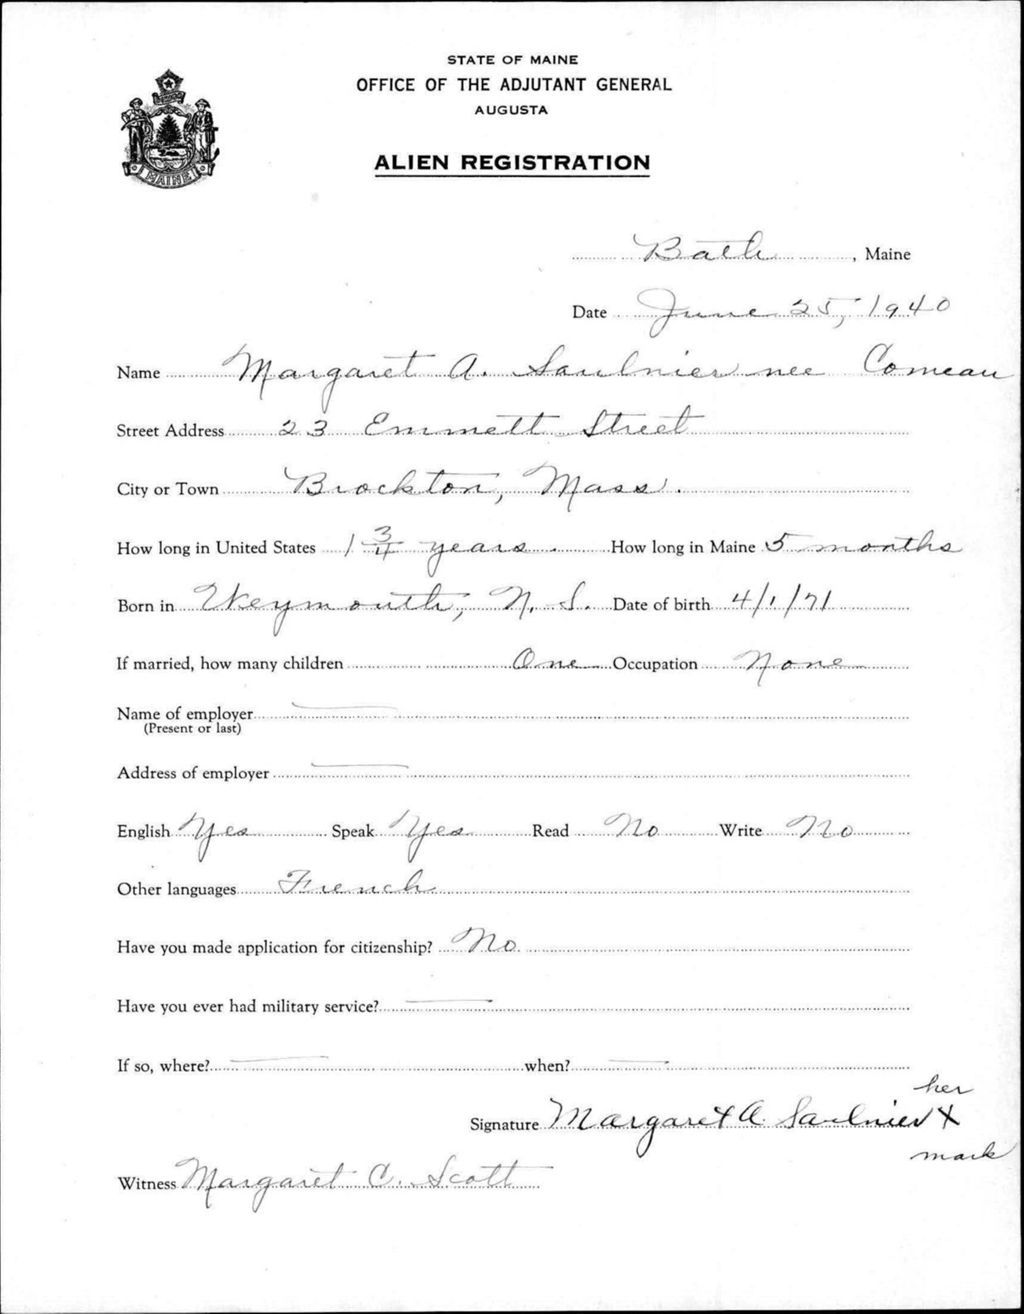 STATE OF MAINE
OFFICE OF THE ADJUTANT GENERAL
AUGUSTA
ALIEN REGISTRATION
MAINE
Bath, Maine
Date June 25, 1940
Name Margaret A. Saulnier nee Comeau
Street Address 23 Emmett Street
City or Town Brockton, Mass.
How long in United States 1 3/4 years. How long in Maine 5 months
Born in Weymouth, N. S. Date of birth 4/1/71
If married, how many children One Occupation None
Name of employer
(Present or last)
Address of employer
English Yes Speak Yes Read No Write No
Other languages French
Have you made application for citizenship? No
Have you ever had military service?
If so, where? when?
her
Signature Margaret A. Saulnier X
mark
Witness Margaret C. Scott